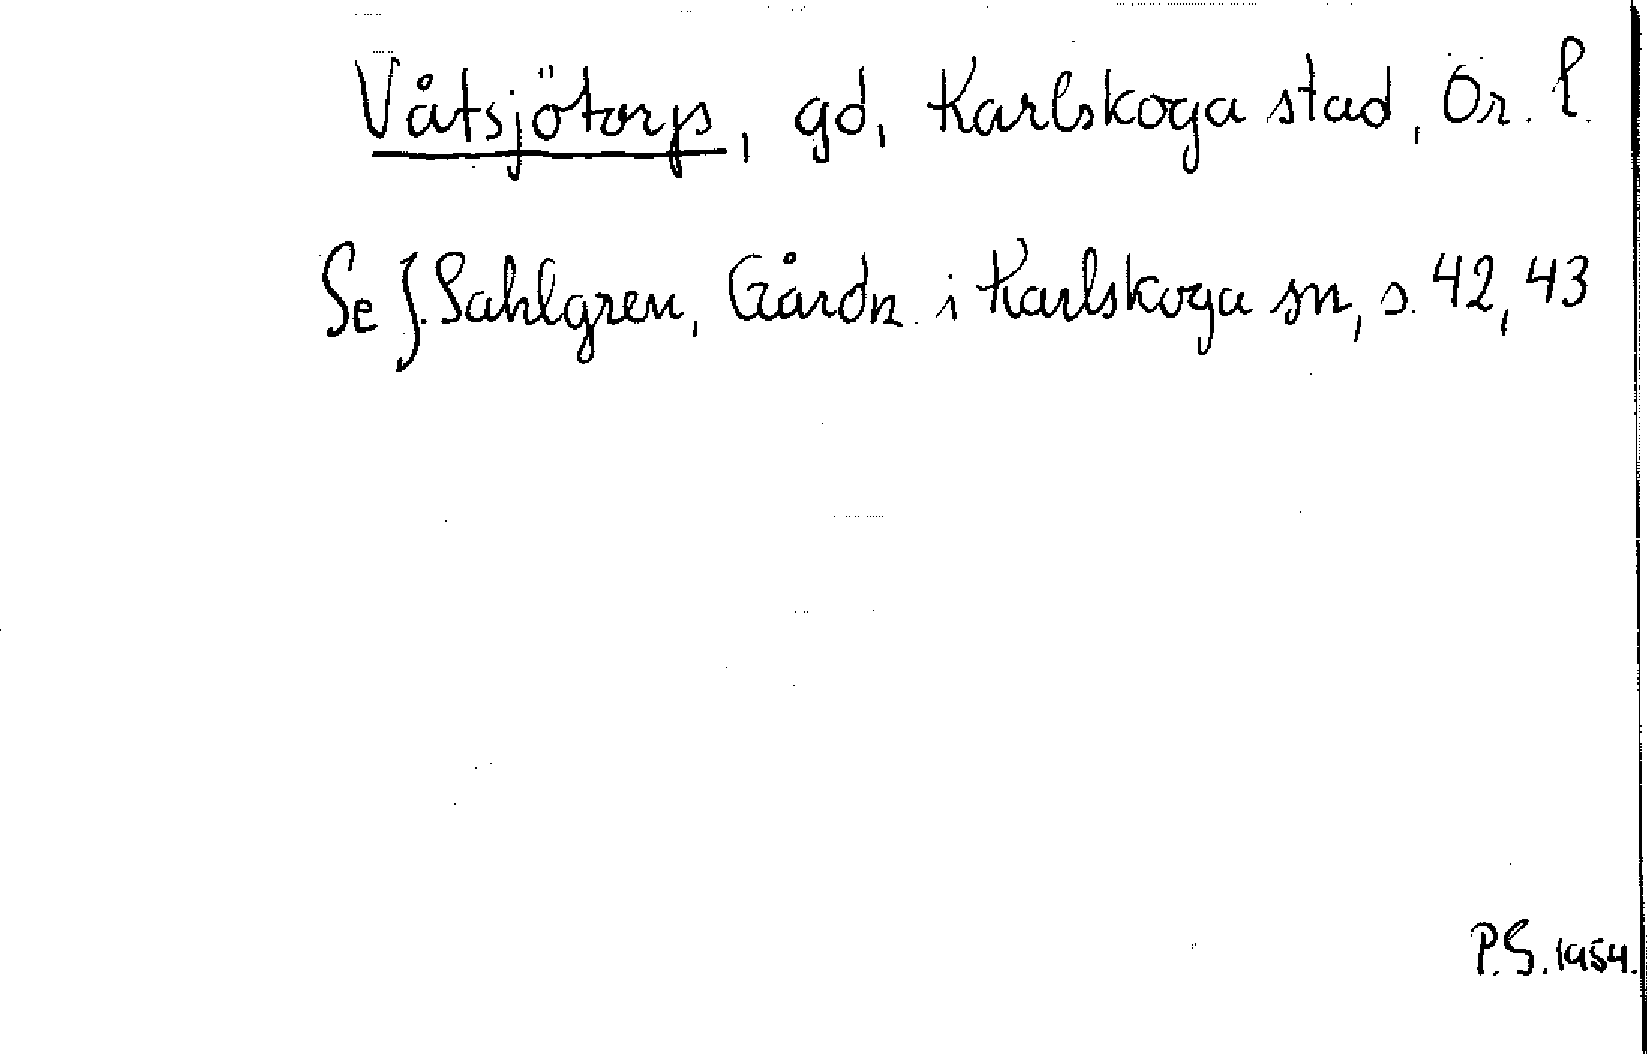 Våtsjötorp, gd, Karlskoga stad, Ör. l.
Se J. Sahlgren, Gårdn. i Karlskoga sn, s. 42, 43
P.S. 1954.